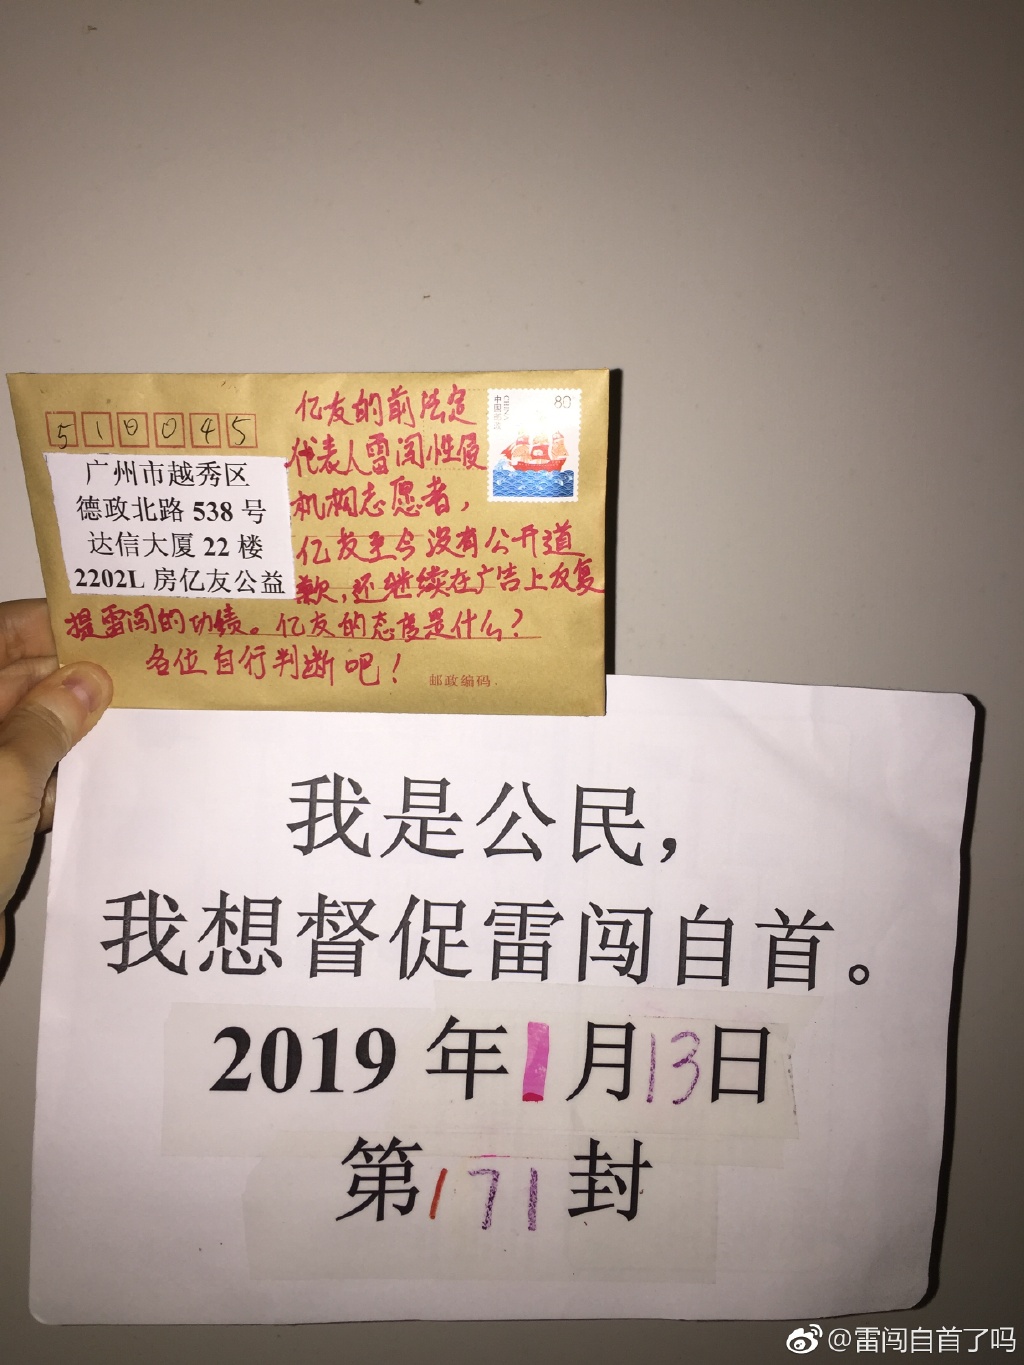 510045
中国邮政
CHINA
80
广州市越秀区
德政北路 538 号
达信大厦 22 楼
2202L 房亿友公益
亿友的前法定
代表人雷闯性侵
机构志愿者，
亿友至今没有公开道
歉，还继续在广告上反复
提雷闯的功绩。亿友的态度是什么？
各位自行判断吧！
邮政编码
我是公民，
我想督促雷闯自首。
2019 年1月13日
第171封
@雷闯自首了吗